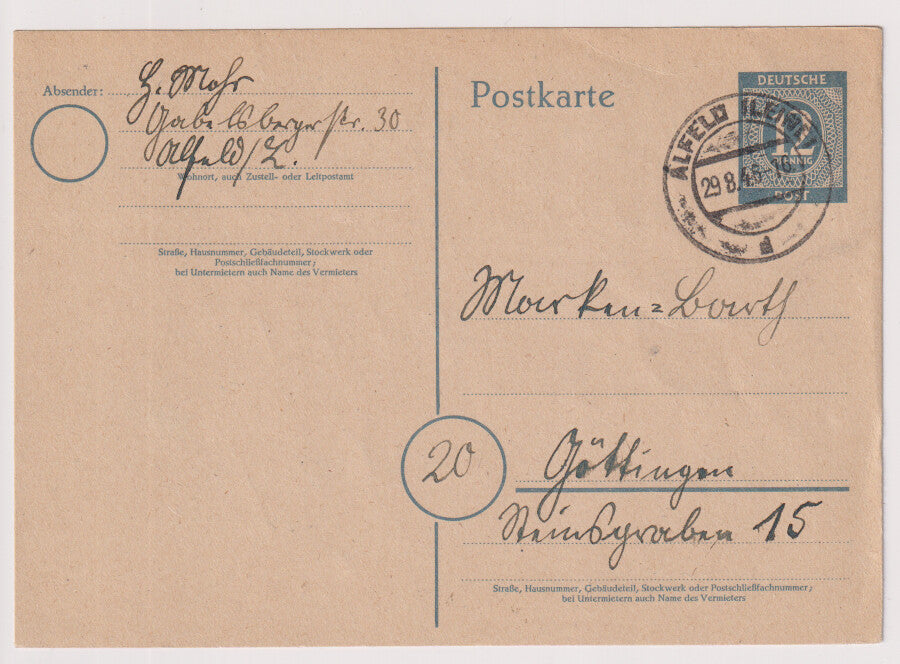 Absender: H. Mohr
Gabelsbergerstr. 30
Alfeld/L.
Wohnort, auch Zustell- oder Leitpostamt
Straße, Hausnummer, Gebäudeteil, Stockwerk oder
Postschließfachnummer;
bei Untermietern auch Name des Vermieters
Postkarte
DEUTSCHE
12
PFENNIG
POST
ALFELD (LEINE)
29.8.46
d
Marken=Barth
20
Göttingen
Steinsgraben 15
Straße, Hausnummer, Gebäudeteil, Stockwerk oder Postschließfachnummer;
bei Untermietern auch Name des Vermieters